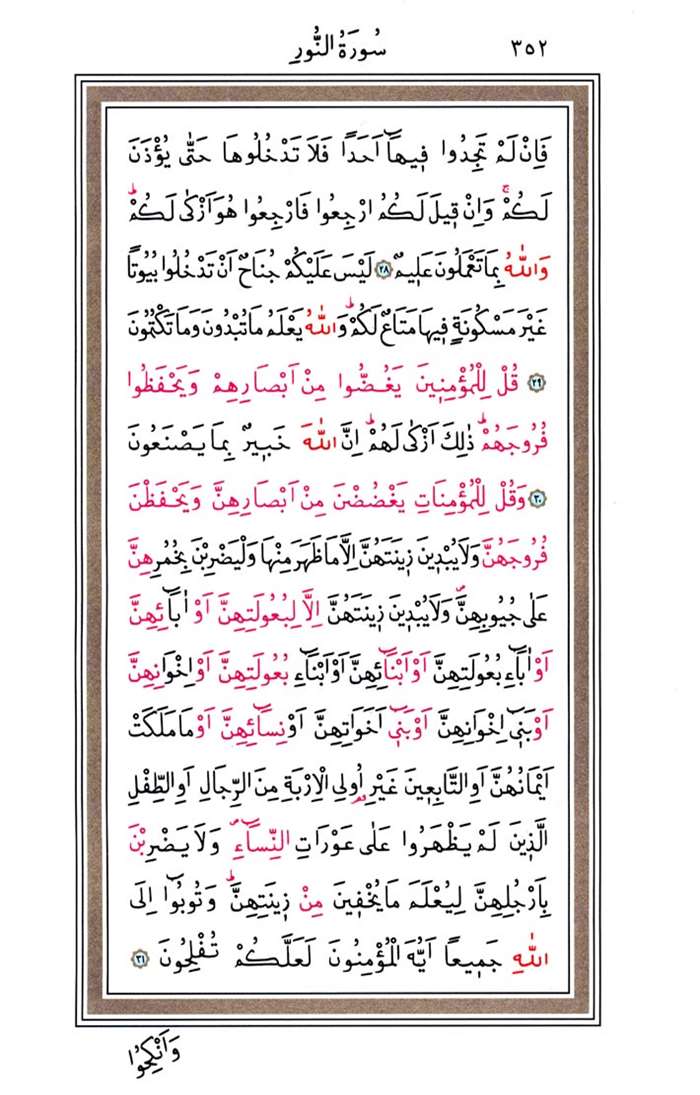 ٣٥٢
سُورَةُ النُّورِ
فَاِنْ لَمْ تَجِدُوا فٖيهَٓا اَحَدًا فَلَا تَدْخُلُوهَا حَتّٰى يُؤْذَنَ
لَكُمْۚ وَاِنْ قٖيلَ لَكُمُ ارْجِعُوا فَارْجِعُوا هُوَ اَزْكٰى لَكُمْؕ
وَاللّٰهُ بِمَا تَعْمَلُونَ عَلٖيمٌ ﴿٢٨﴾ لَيْسَ عَلَيْكُمْ جُنَاحٌ اَنْ تَدْخُلُوا بُيُوتًا
غَيْرَ مَسْكُونَةٍ فٖيهَا مَتَاعٌ لَكُمْؕ وَاللّٰهُ يَعْلَمُ مَا تُبْدُونَ وَمَا تَكْتُمُونَ
﴿٢٩﴾ قُلْ لِلْمُؤْمِنٖينَ يَغُضُّوا مِنْ اَبْصَارِهِمْ وَيَحْفَظُوا
فُرُوجَهُمْؕ ذٰلِكَ اَزْكٰى لَهُمْؕ اِنَّ اللّٰهَ خَبٖيرٌ بِمَا يَصْنَعُونَ
﴿٣٠﴾ وَقُلْ لِلْمُؤْمِنَاتِ يَغْضُضْنَ مِنْ اَبْصَارِهِنَّ وَيَحْفَظْنَ
فُرُوجَهُنَّ وَلَا يُبْدٖينَ زٖينَتَهُنَّ اِلَّا مَا ظَهَرَ مِنْهَا وَلْيَضْرِبْنَ بِخُمُرِهِنَّ
عَلٰى جُيُوبِهِنَّࣕ وَلَا يُبْدٖينَ زٖينَتَهُنَّ اِلَّا لِبُعُولَتِهِنَّ اَوْ اٰبَٓائِهِنَّ
اَوْ اٰبَٓاءِ بُعُولَتِهِنَّ اَوْ اَبْنَٓائِهِنَّ اَوْ اَبْنَٓاءِ بُعُولَتِهِنَّ اَوْ اِخْوَانِهِنَّ
اَوْ بَنٖٓى اِخْوَانِهِنَّ اَوْ بَنٖٓى اَخَوَاتِهِنَّ اَوْ نِسَٓائِهِنَّ اَوْ مَا مَلَكَتْ
اَيْمَانُهُنَّ اَوِ التَّابِعٖينَ غَيْرِ اُو۬لِى الْاِرْبَةِ مِنَ الرِّجَالِ اَوِ الطِّفْلِ
الَّذٖينَ لَمْ يَظْهَرُوا عَلٰى عَوْرَاتِ النِّسَٓاءِࣕ وَلَا يَضْرِبْنَ
بِاَرْجُلِهِنَّ لِيُعْلَمَ مَا يُخْفٖينَ مِنْ زٖينَتِهِنَّؕ وَتُوبُٓوا اِلَى
اللّٰهِ جَمٖيعًا اَيُّهَ الْمُؤْمِنُونَ لَعَلَّكُمْ تُفْلِحُونَ ﴿٣١﴾
وَاَنْكِحُوا